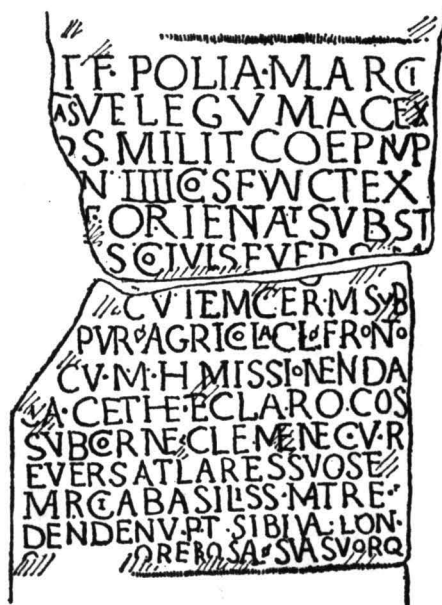 T F·POLIA·MARCI
ASVELEGVMACEX
OS.MILITCOEPNVP
N IIIICOSFVNCTEX
ORIENATSVBST
S CIVISEVER
CVIEMCERMSVB
PVRO AGRICOLACLOFRONO
CV·M·H MISSIONENDA
A·CETHE·ECLARO·COS
SVBCORNE·CLEMENECV·R
EVERSATLARESSVOSE
MRCIABASILISS·MTRE·
DENDENVPT·SIBIVAL·LON·
OREBOSA SVASVORQ